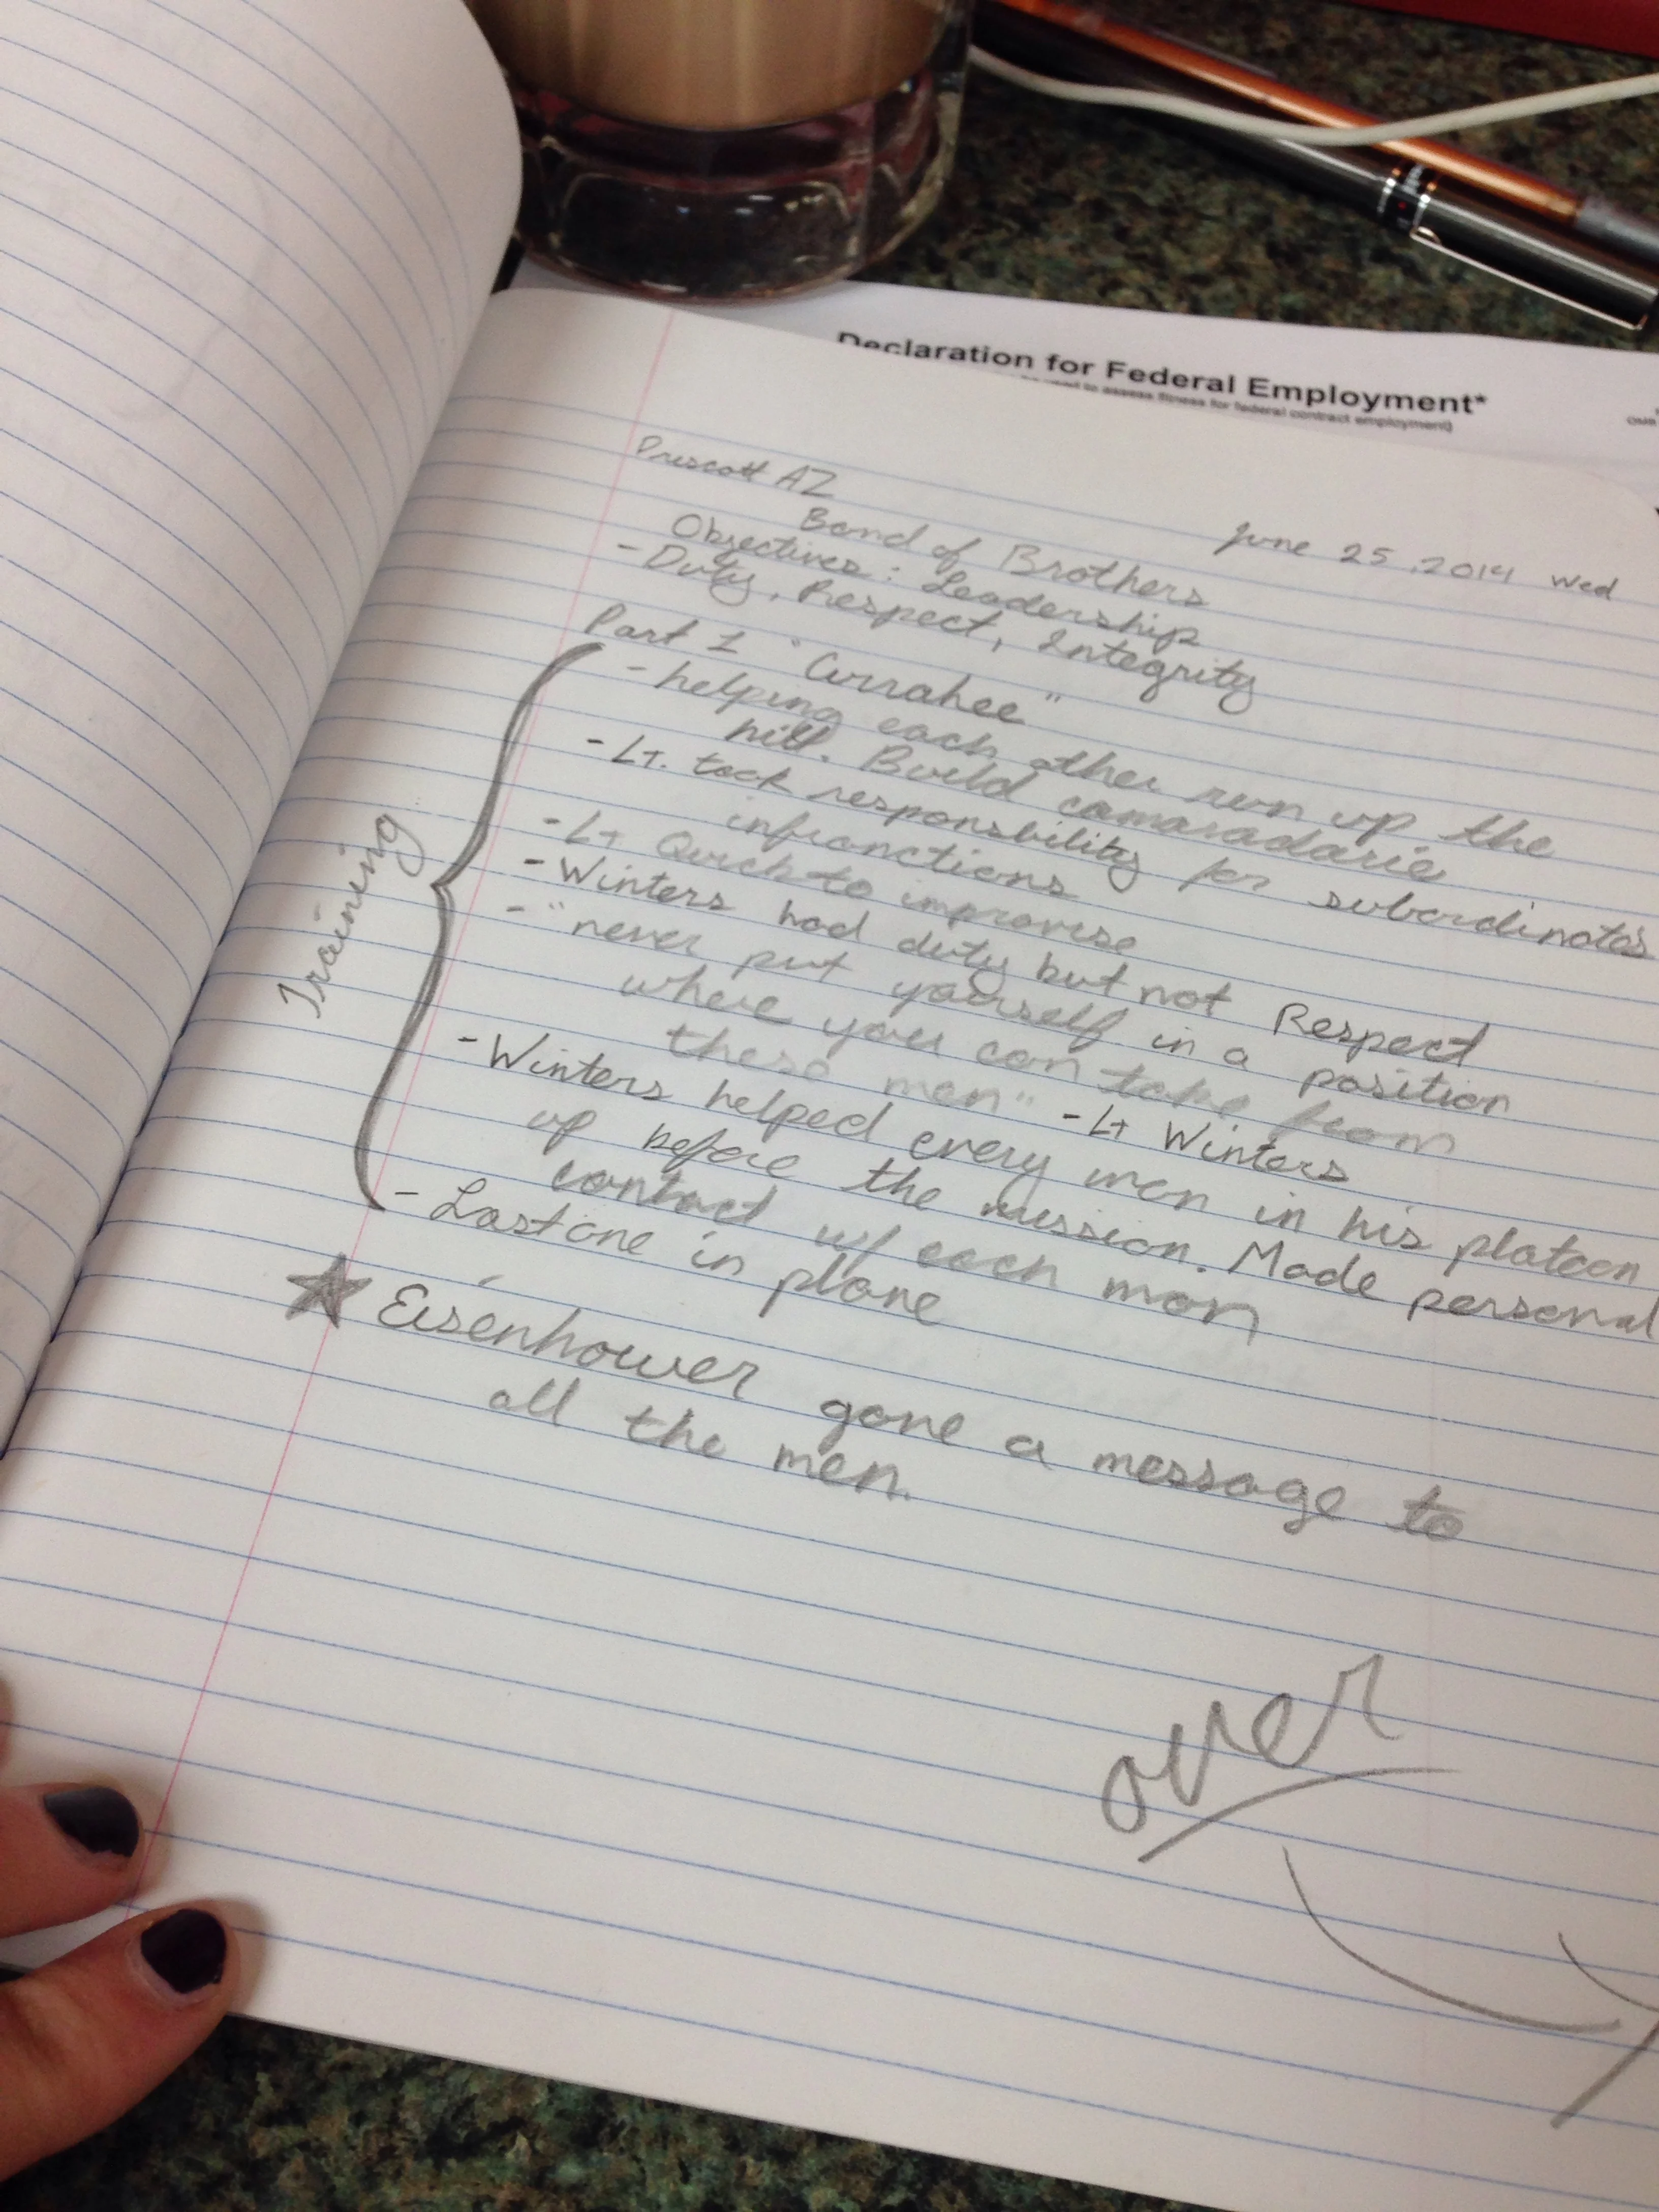 Declaration for Federal Employment*
used to assess fitness for federal contract employment)
OMB
Prescott AZ
June 25, 2014 Wed
Band of Brothers
Objectives: Leadership
- Duty, Respect, Integrity
Part 1 "Currahee"
- helping each other run up the
hill. Build camaradarie
- Lt. took responsbility for subordinates
infranctions
- Lt Quick to improvise
- Winters had duty but not Respect
- "never put yourself in a position
where you can take from
these men" - Lt Winters
- Winters helped every man in his platoon
up before the mission. Made personal
contact w/ each man
- Last one in plane
Training
★ Eisenhower gave a message to
all the men.
over